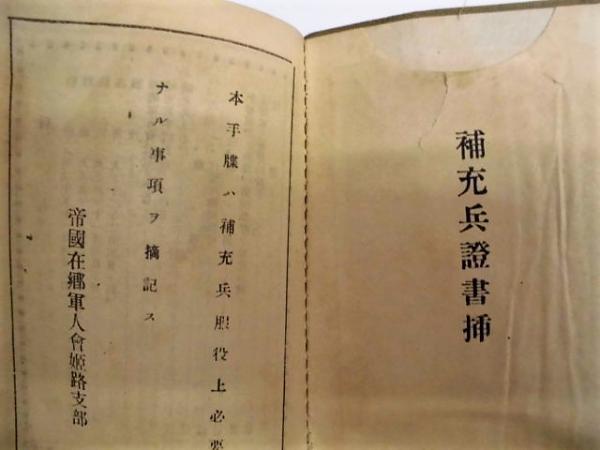 補充兵證書挿
本手牒ハ補充兵服役上必要
ナル事項ヲ摘記ス
帝國在鄕軍人會姬路支部